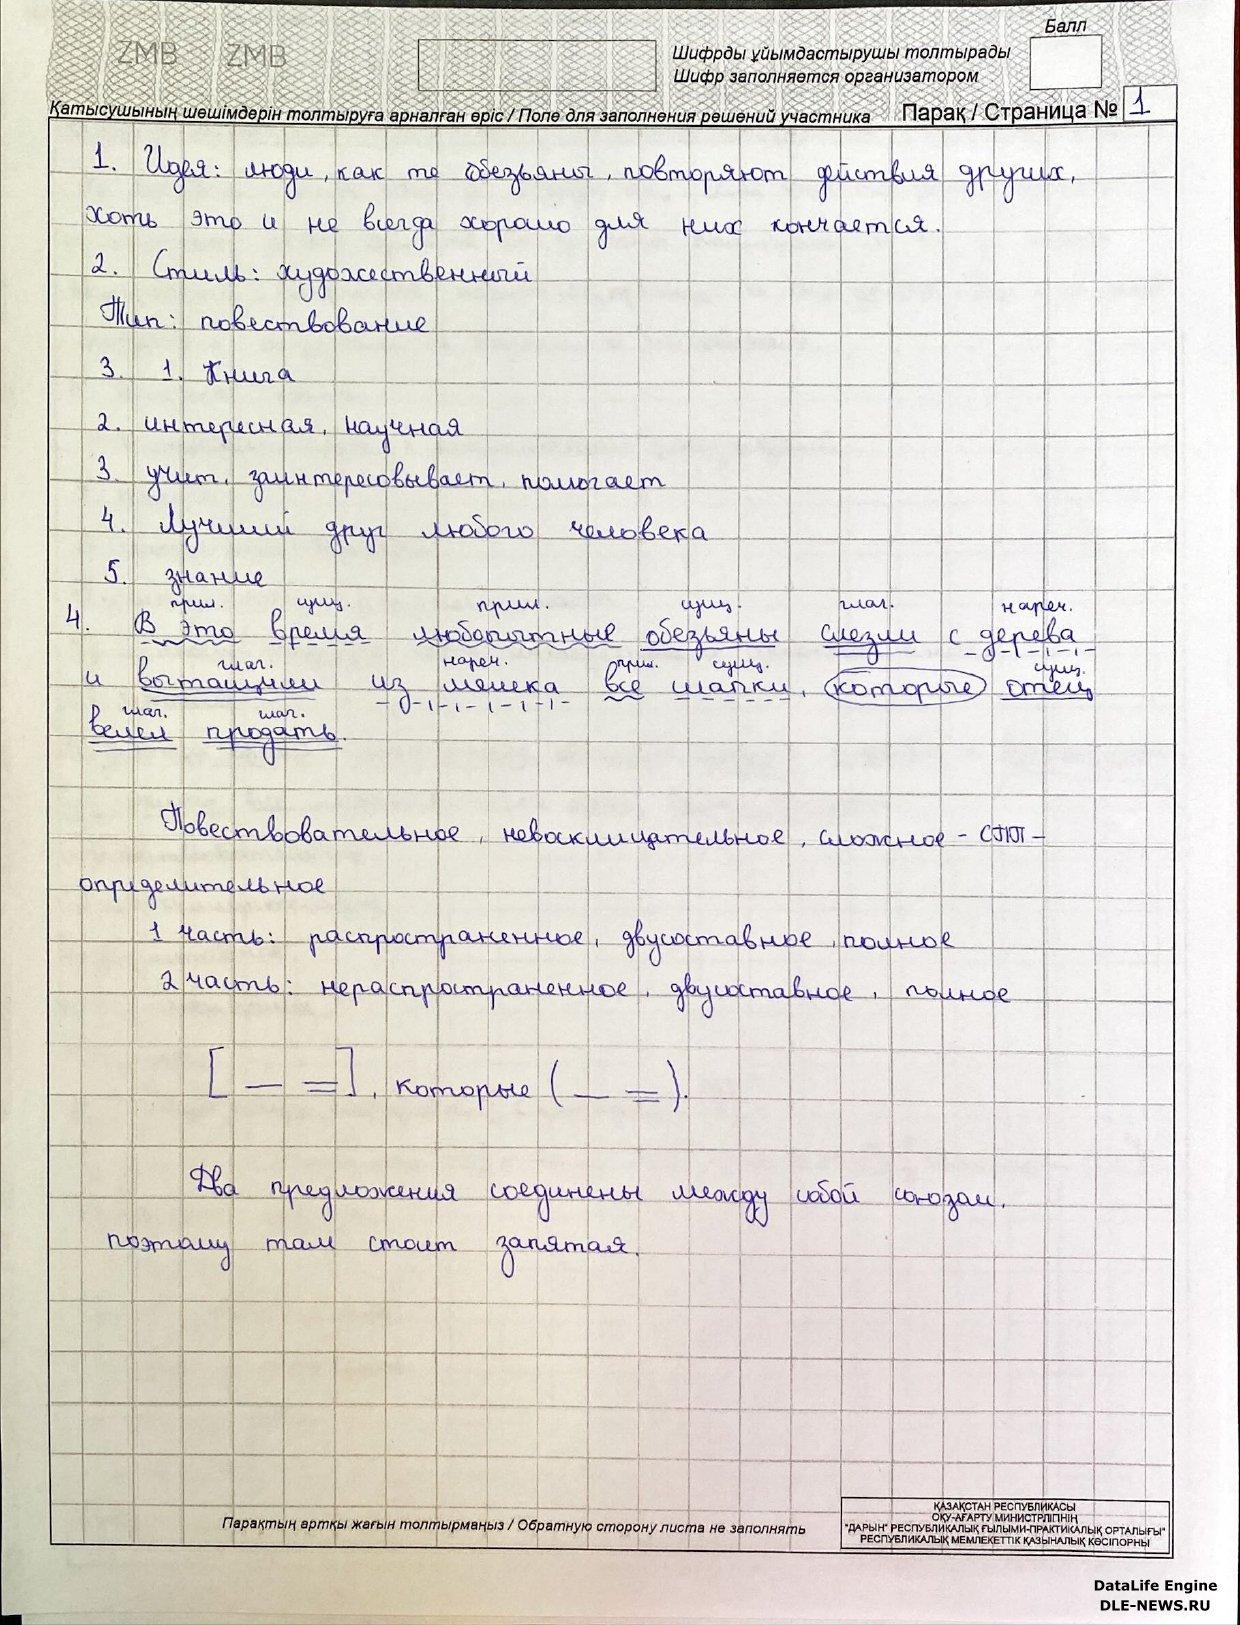 ZMB ZMB
Балл
Шифрды ұйымдастырушы толтырады
Шифр заполняется организатором
Қатысушының шешімдерін толтыруға арналған өріс / Поле для заполнения решений участника
Парақ / Страница № 1
1. Идея: люди, как те обезьяны, повторяют действия других,
хоть это и не всегда хорошо для них кончается.
2. Стиль: художественный
Тип: повествование
3. 1. Книга
2. интересная, научная
3. учит, заинтересовывает, помогает
4. Лучший друг любого человека
5. знание
прил. сущ. прил. сущ. глаг. нареч.
4. В это время любопытные обезьяны слезли с дерева
глаг. нареч. прил. сущ. сущ.
и вытащили из мешка все шапки, которые отец
глаг. глаг.
велел продать.
Повествовательное, невосклицательное, сложное - СПП -
определительное
1 часть: распространенное, двусоставное, полное
2 часть: нераспространенное, двусоставное, полное
[ — = ], которые ( — = ).
Два предложения соединены между собой союзом,
поэтому там стоит запятая.
Парақтың артқы жағын толтырмаңыз / Обратную сторону листа не заполнять
ҚАЗАҚСТАН РЕСПУБЛИКАСЫ
ОҚУ-АҒАРТУ МИНИСТРЛІГІНІҢ
"ДАРЫН" РЕСПУБЛИКАЛЫҚ ҒЫЛЫМИ-ПРАКТИКАЛЫҚ ОРТАЛЫҒЫ"
РЕСПУБЛИКАЛЫҚ МЕМЛЕКЕТТІК ҚАЗЫНАЛЫҚ КӘСІПОРНЫ
DataLife Engine
DLE-NEWS.RU